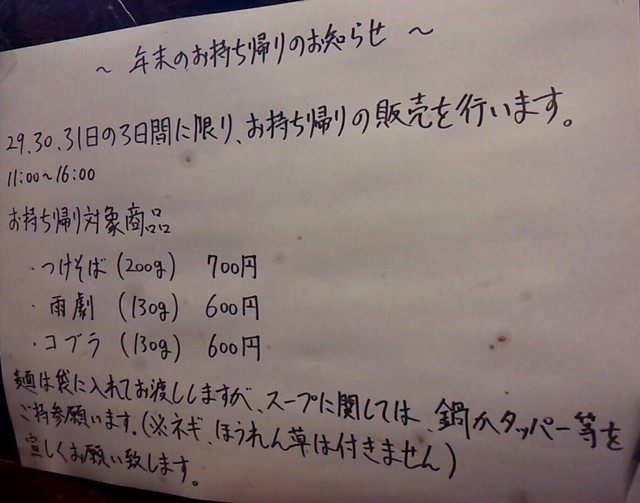 ～ 年末のお持ち帰りのお知らせ ～
29.30.31日の3日間に限り、お持ち帰りの販売を行います。
11:00～16:00
お持ち帰り対象商品
・つけそば (200g) 700円
・雨劇 (130g) 600円
・コブラ (130g) 600円
麺は袋に入れてお渡ししますが、スープに関しては、鍋かタッパー等を
ご持参願います。(※ネギ、ほうれん草は付きません)
宜しくお願い致します。